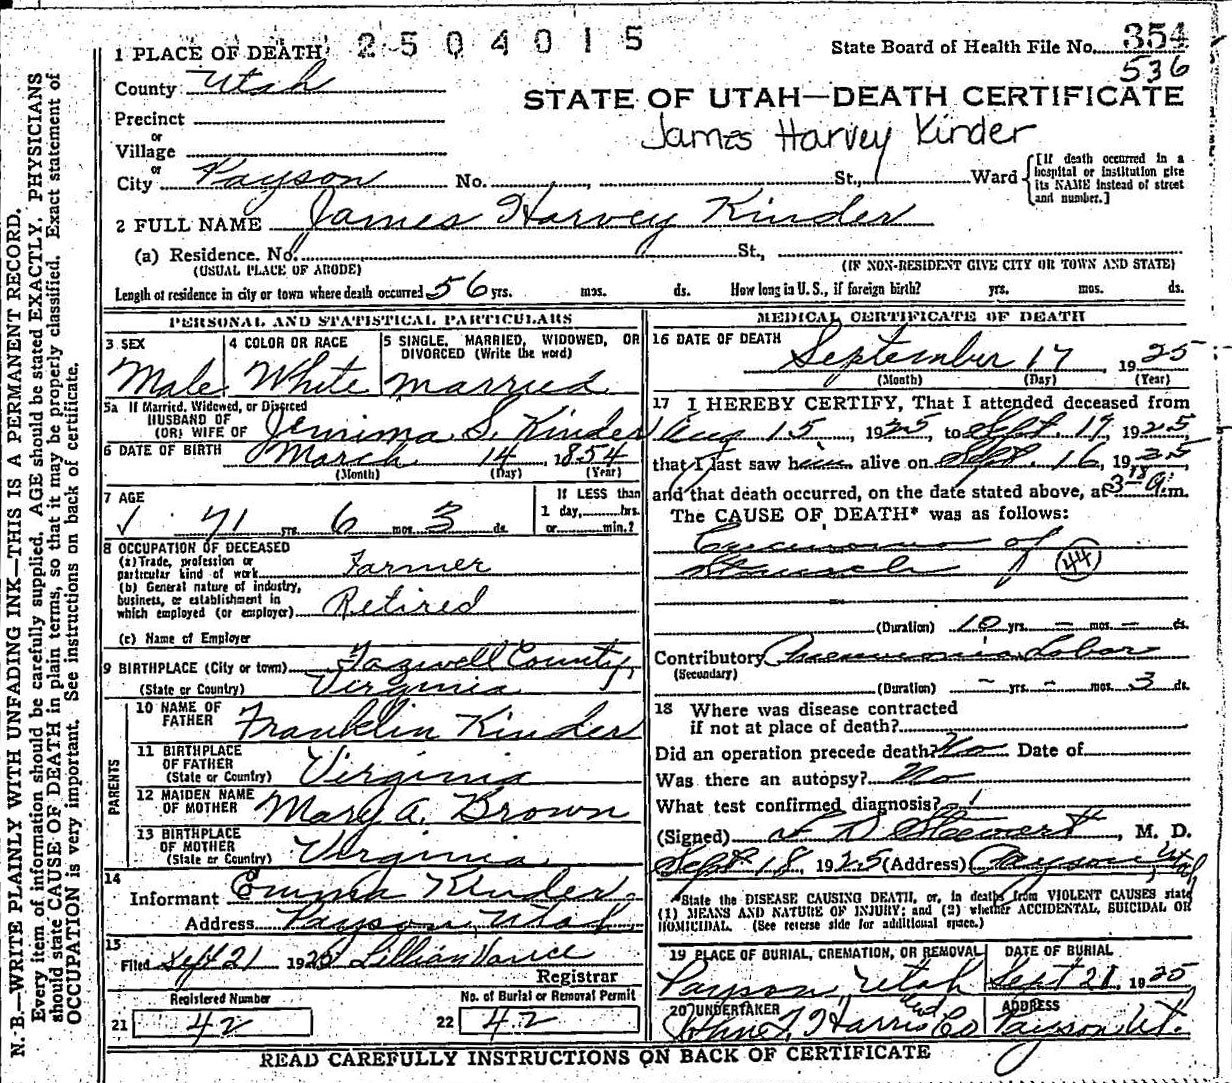 2504015
1 PLACE OF DEATH
State Board of Health File No. 354
536
County Utah
STATE OF UTAH—DEATH CERTIFICATE
Precinct
James Harvey Kinder
or
Village
or
City Payson No. , St., Ward
[If death occurred in a
hospital or institution give
its NAME instead of street
and number.]
2 FULL NAME James Harvey Kinder
(a) Residence. No. St.,
(USUAL PLACE OF ABODE) (IF NON-RESIDENT GIVE CITY OR TOWN AND STATE)
Length of residence in city or town where death occurred 56 yrs. mos. ds. How long in U. S., if foreign birth? yrs. mos. ds.
PERSONAL AND STATISTICAL PARTICULARS
3 SEX 4 COLOR OR RACE 5 SINGLE, MARRIED, WIDOWED, OR
DIVORCED (Write the word)
Male White Married
5a If Married, Widowed, or Divorced
HUSBAND OF
(OR) WIFE OF Jemima S. Kinder
6 DATE OF BIRTH March 14, 1854
(Month) (Day) (Year)
7 AGE
71 yrs. 6 mos. 3 ds.
If LESS than
1 day, hrs.
or min.?
8 OCCUPATION OF DECEASED
(a) Trade, profession or
particular kind of work Farmer
(b) General nature of industry,
business, or establishment in
which employed (or employer) Retired
(c) Name of Employer
9 BIRTHPLACE (City or town) Tazwell County,
(State or Country) Virginia
PARENTS
10 NAME OF
FATHER Franklin Kinder
11 BIRTHPLACE
OF FATHER
(State or Country) Virginia
12 MAIDEN NAME
OF MOTHER Mary A. Brown
13 BIRTHPLACE
OF MOTHER
(State or Country) Virginia
14
Informant Emma Kinder
Address Payson, Utah
15
Filed Sept 21 1925 Lillian Vance
Registrar
Registered Number No. of Burial or Removal Permit
21 42 22 42
MEDICAL CERTIFICATE OF DEATH
16 DATE OF DEATH
September 17, 1925
(Month) (Day) (Year)
17 I HEREBY CERTIFY, That I attended deceased from
Aug 15, 1925, to Sept. 17, 1925,
that I last saw him alive on Sept. 16, 1925
and that death occurred, on the date stated above, at 3 18 a.m.
The CAUSE OF DEATH* was as follows:
Carcinoma of
Stomach 44
(Duration) 10 yrs. – mos. – ds.
Contributory Pneumonia Lobar
(Secondary)
(Duration) – yrs. – mos. 3 ds.
18 Where was disease contracted
if not at place of death?
Did an operation precede death? No Date of
Was there an autopsy? No
What test confirmed diagnosis?
(Signed) L D Stewart, M. D.
Sept 18, 1925 (Address) Payson, Utah
*State the DISEASE CAUSING DEATH, or, in deaths from VIOLENT CAUSES state
(1) MEANS AND NATURE OF INJURY; and (2) whether ACCIDENTAL, SUICIDAL OR
HOMICIDAL. (See reverse side for additional space.)
19 PLACE OF BURIAL, CREMATION, OR REMOVAL DATE OF BURIAL
Payson, Utah Sept 21 1925
20 UNDERTAKER ADDRESS
Harris Co Payson Ut.
READ CAREFULLY INSTRUCTIONS ON BACK OF CERTIFICATE
N. B.—WRITE PLAINLY WITH UNFADING INK—THIS IS A PERMANENT RECORD.
Every item of information should be carefully supplied. AGE should be stated EXACTLY. PHYSICIANS
should state CAUSE OF DEATH in plain terms, so that it may be properly classified. Exact statement of
OCCUPATION is very important. See instructions on back of certificate.